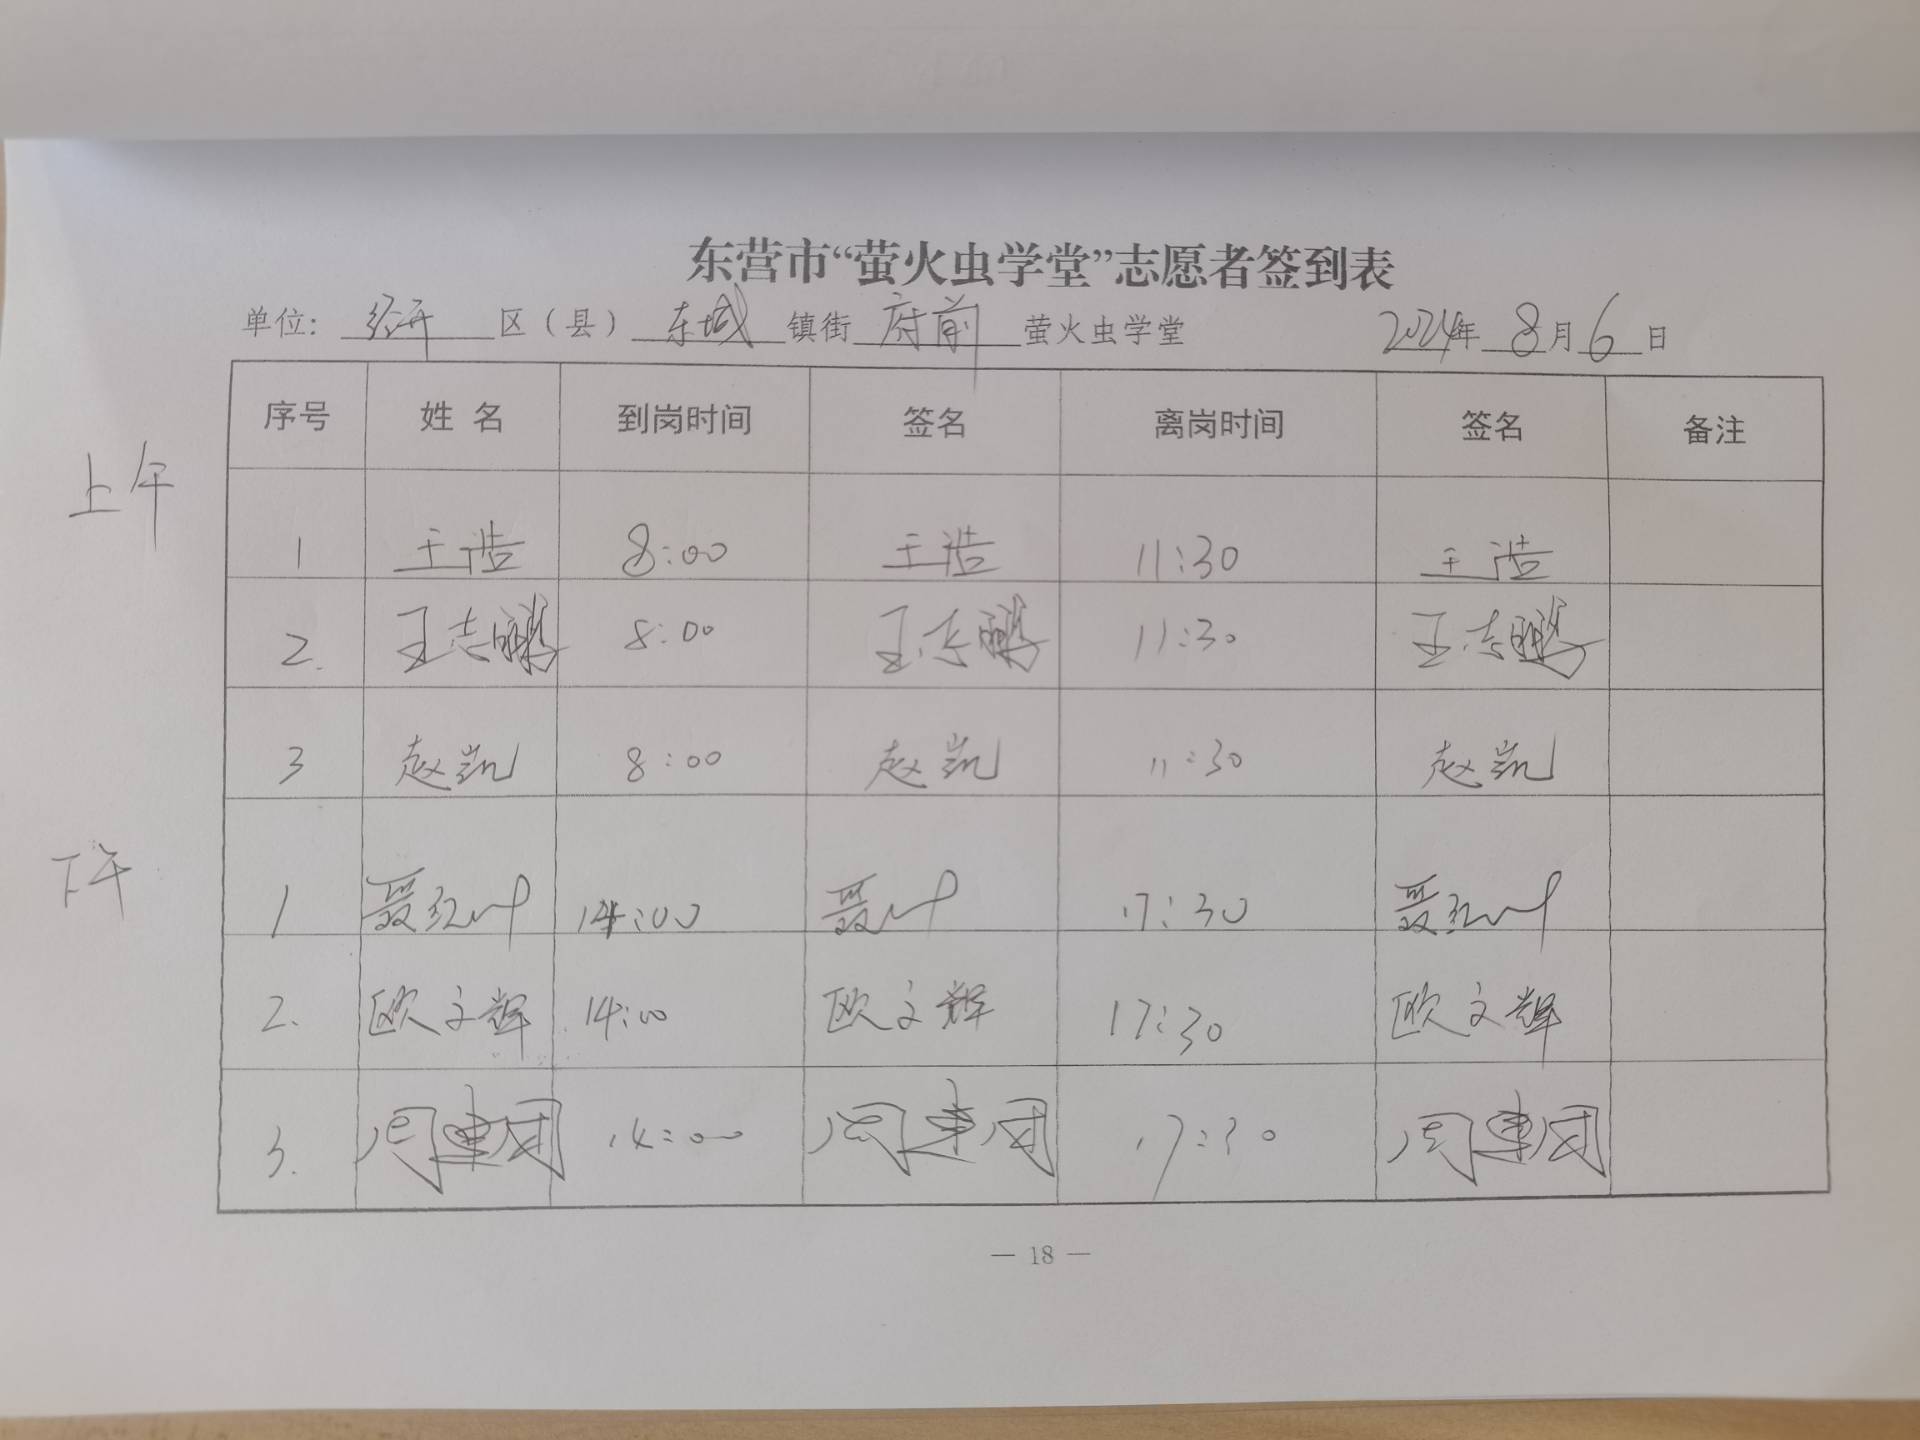 东营市“萤火虫学堂”志愿者签到表
单位: 经开 区（县） 东城 镇街 府前 萤火虫学堂 2024年 8 月 6 日
序号 姓名 到岗时间 签名 离岗时间 签名 备注
上午
1 王浩 8:00 王浩 11:30 王浩
2. 王志鹏 8:00 王志鹏 11:30 王志鹏
3 赵凯 8:00 赵凯 11:30 赵凯
下午
1 聂红叶 14:00 聂叶 17:30 聂红叶
2. 欧文辉 14:00 欧文辉 17:30 欧文辉
3. 14:00 17:30
— 18 —